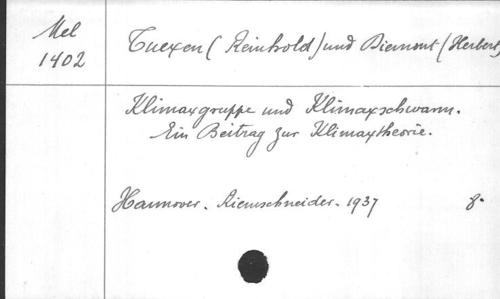 Mel
1402
Tuexen (Reinhold) und Diemont (Herbert)
Klimaxgruppe und Klimaxschwarm.
Ein Beitrag zur Klimaxtheorie.
Hannover. Riemschneider. 1937 8.